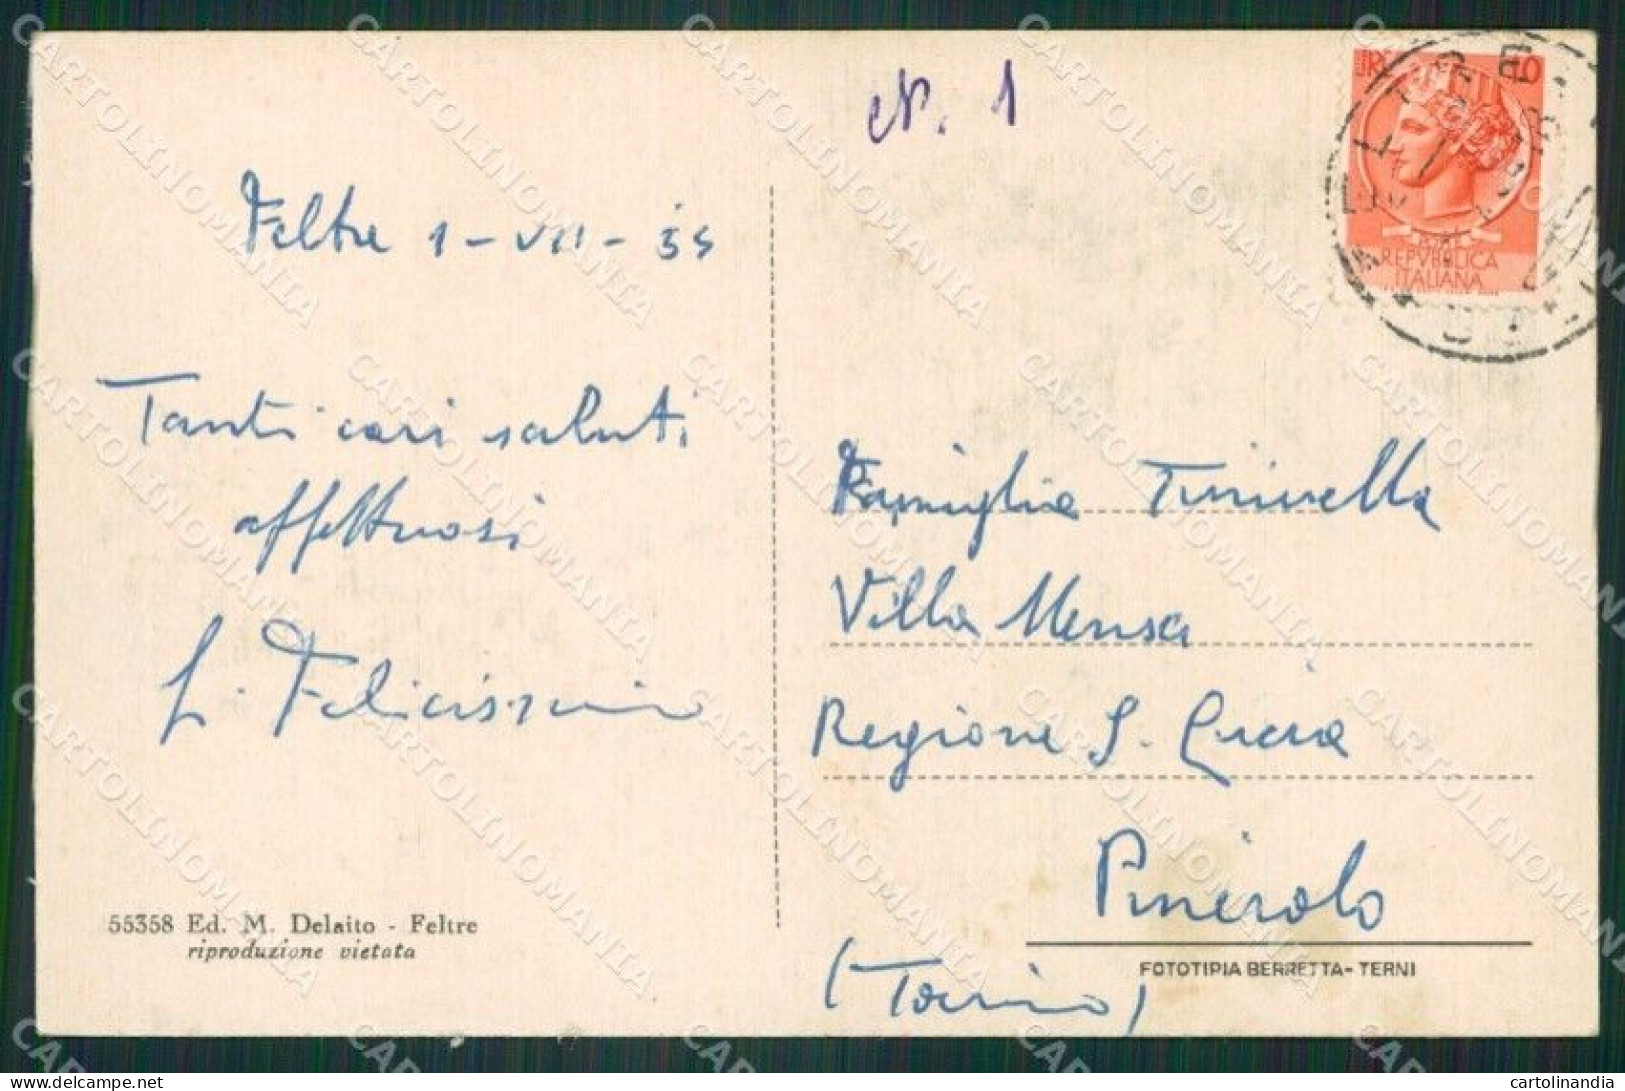 N. 1
LIRE 10
REPVBBLICA
ITALIANA
Feltre 1-VII-55
Tanti cari saluti
affettuosi
L. Felicissimo
Famiglia Tirivella
Villa Mensa
Regione S. Lucia
Pinerolo
(Torino)
55358 Ed. M. Delaito - Feltre
riproduzione vietata
FOTOTIPIA BERRETTA - TERNI
CARTOLINOMANIA
cartolinandia